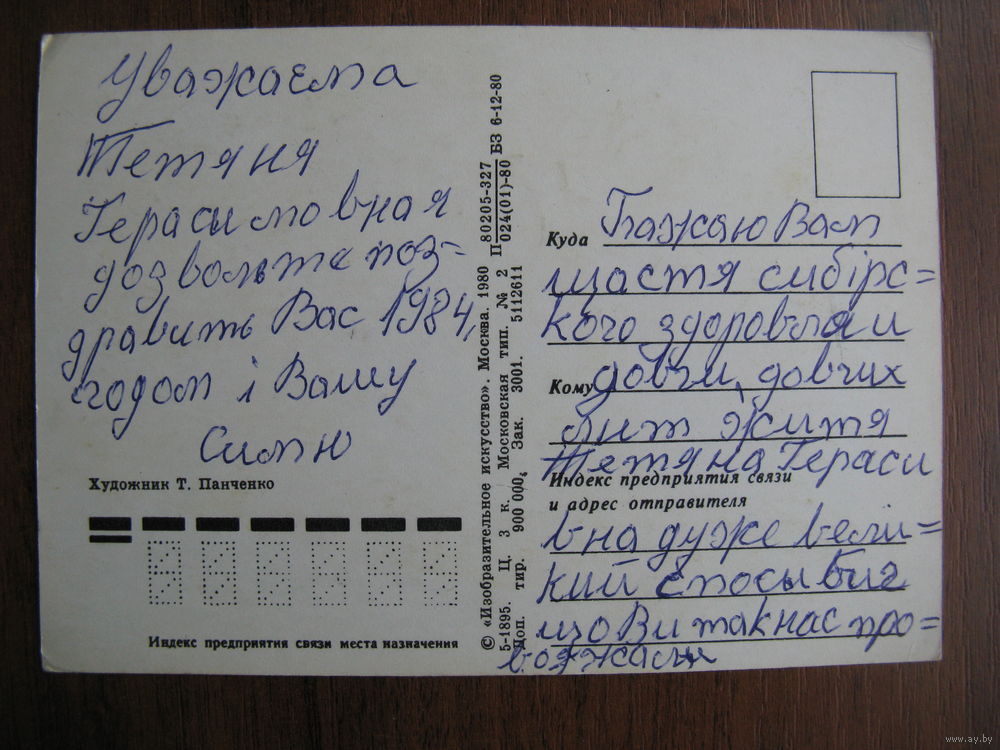 Уважаєма
Тетяня
Герасимовная
дозвольте поз-
дравить Вас 1984,
годом і Вашу
симю
Художник Т. Панченко
Индекс предприятия связи места назначения
© «Изобразительное искусство». Москва. 1980
5-1895. Ц. 3 к. Московская тип. № 2
Доп. тир. 900 000. Зак. 3001. 5112611
П 80205-327
024(01)-80 БЗ 6-12-80
Куда Бажаю Вам
щастя сибірс=
кого здоровля и
Кому довги, довгих
лит життя
Тетяна Гераси
Индекс предприятия связи
и адрес отправителя
вна дуже вели=
кий спосыбиг
що Ви так нас про=
вожжали
www.ay.by